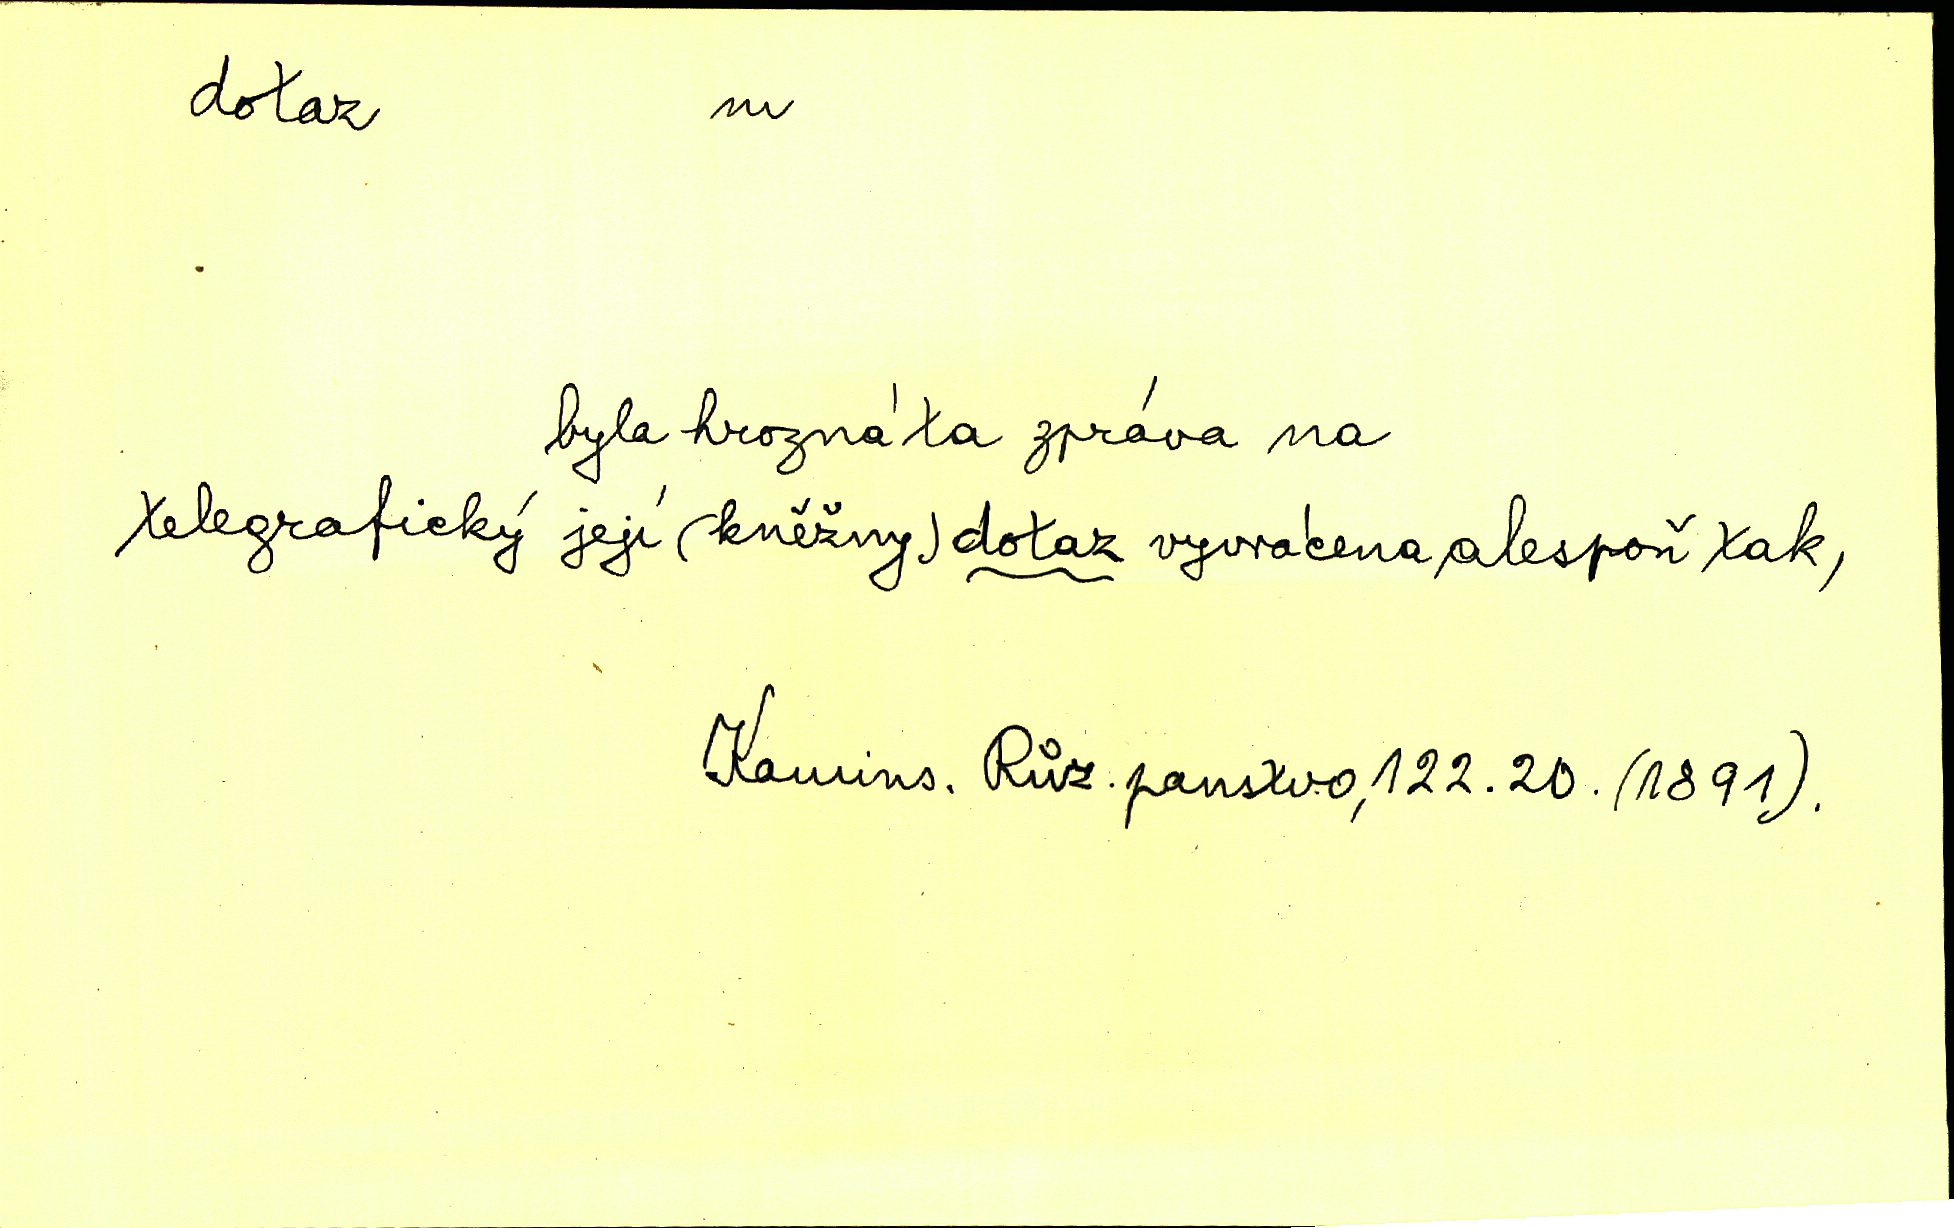 dotaz m
byla hrozná ta zpráva na
telegrafický její (kněžny) dotaz vyvrácena, alespoň tak,
Kamins. Růz. panstvo, 122. 20. (1891).